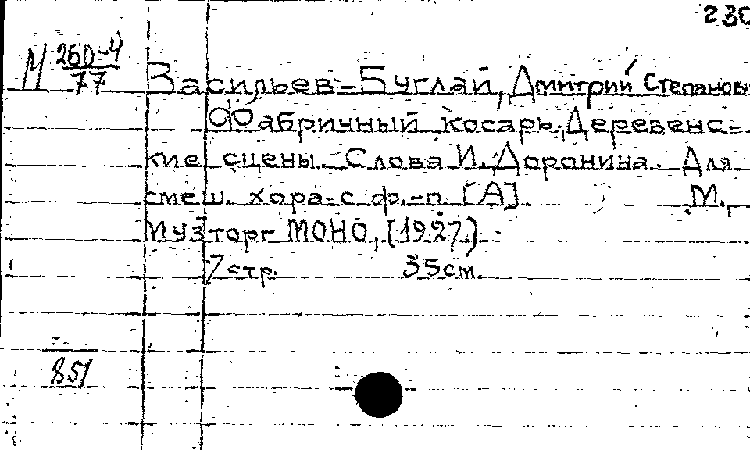 230
М 260-4
77
Васильев-Буглай, Дмитрий Степанов
Фабричный косарь. Деревенс-
кие сцены. Слова И. Доронина. Для
смеш. хора с ф.-п. [А] М.,
Музторг МОНО, [1927.]
7 стр. 35 см.
851